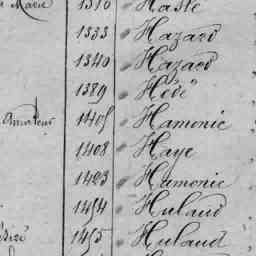 Marie 1310 Haste
1333 Hazard
1340 Hazard
1389 Hédé
Amateur 1405 Hamonic
1408 Haye
1423 Hamonic
1454 Hulaud
1455 Hulaud